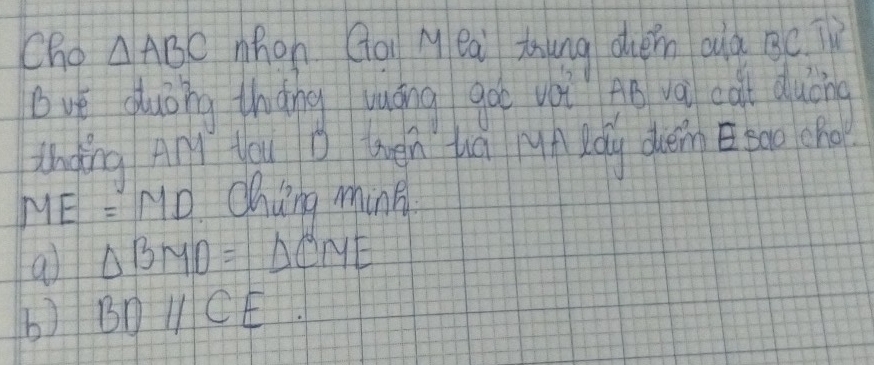 Cho ΔABC nhọn. Gọi M là trung điểm của BC. Từ
B vẽ đường thẳng vuông góc với AB và cắt đường
thẳng AM tại D trên tia MA lấy điểm E sao cho
ME = MD. Chứng minh.
a) ΔBMD = ΔCME
b) BD // CE.